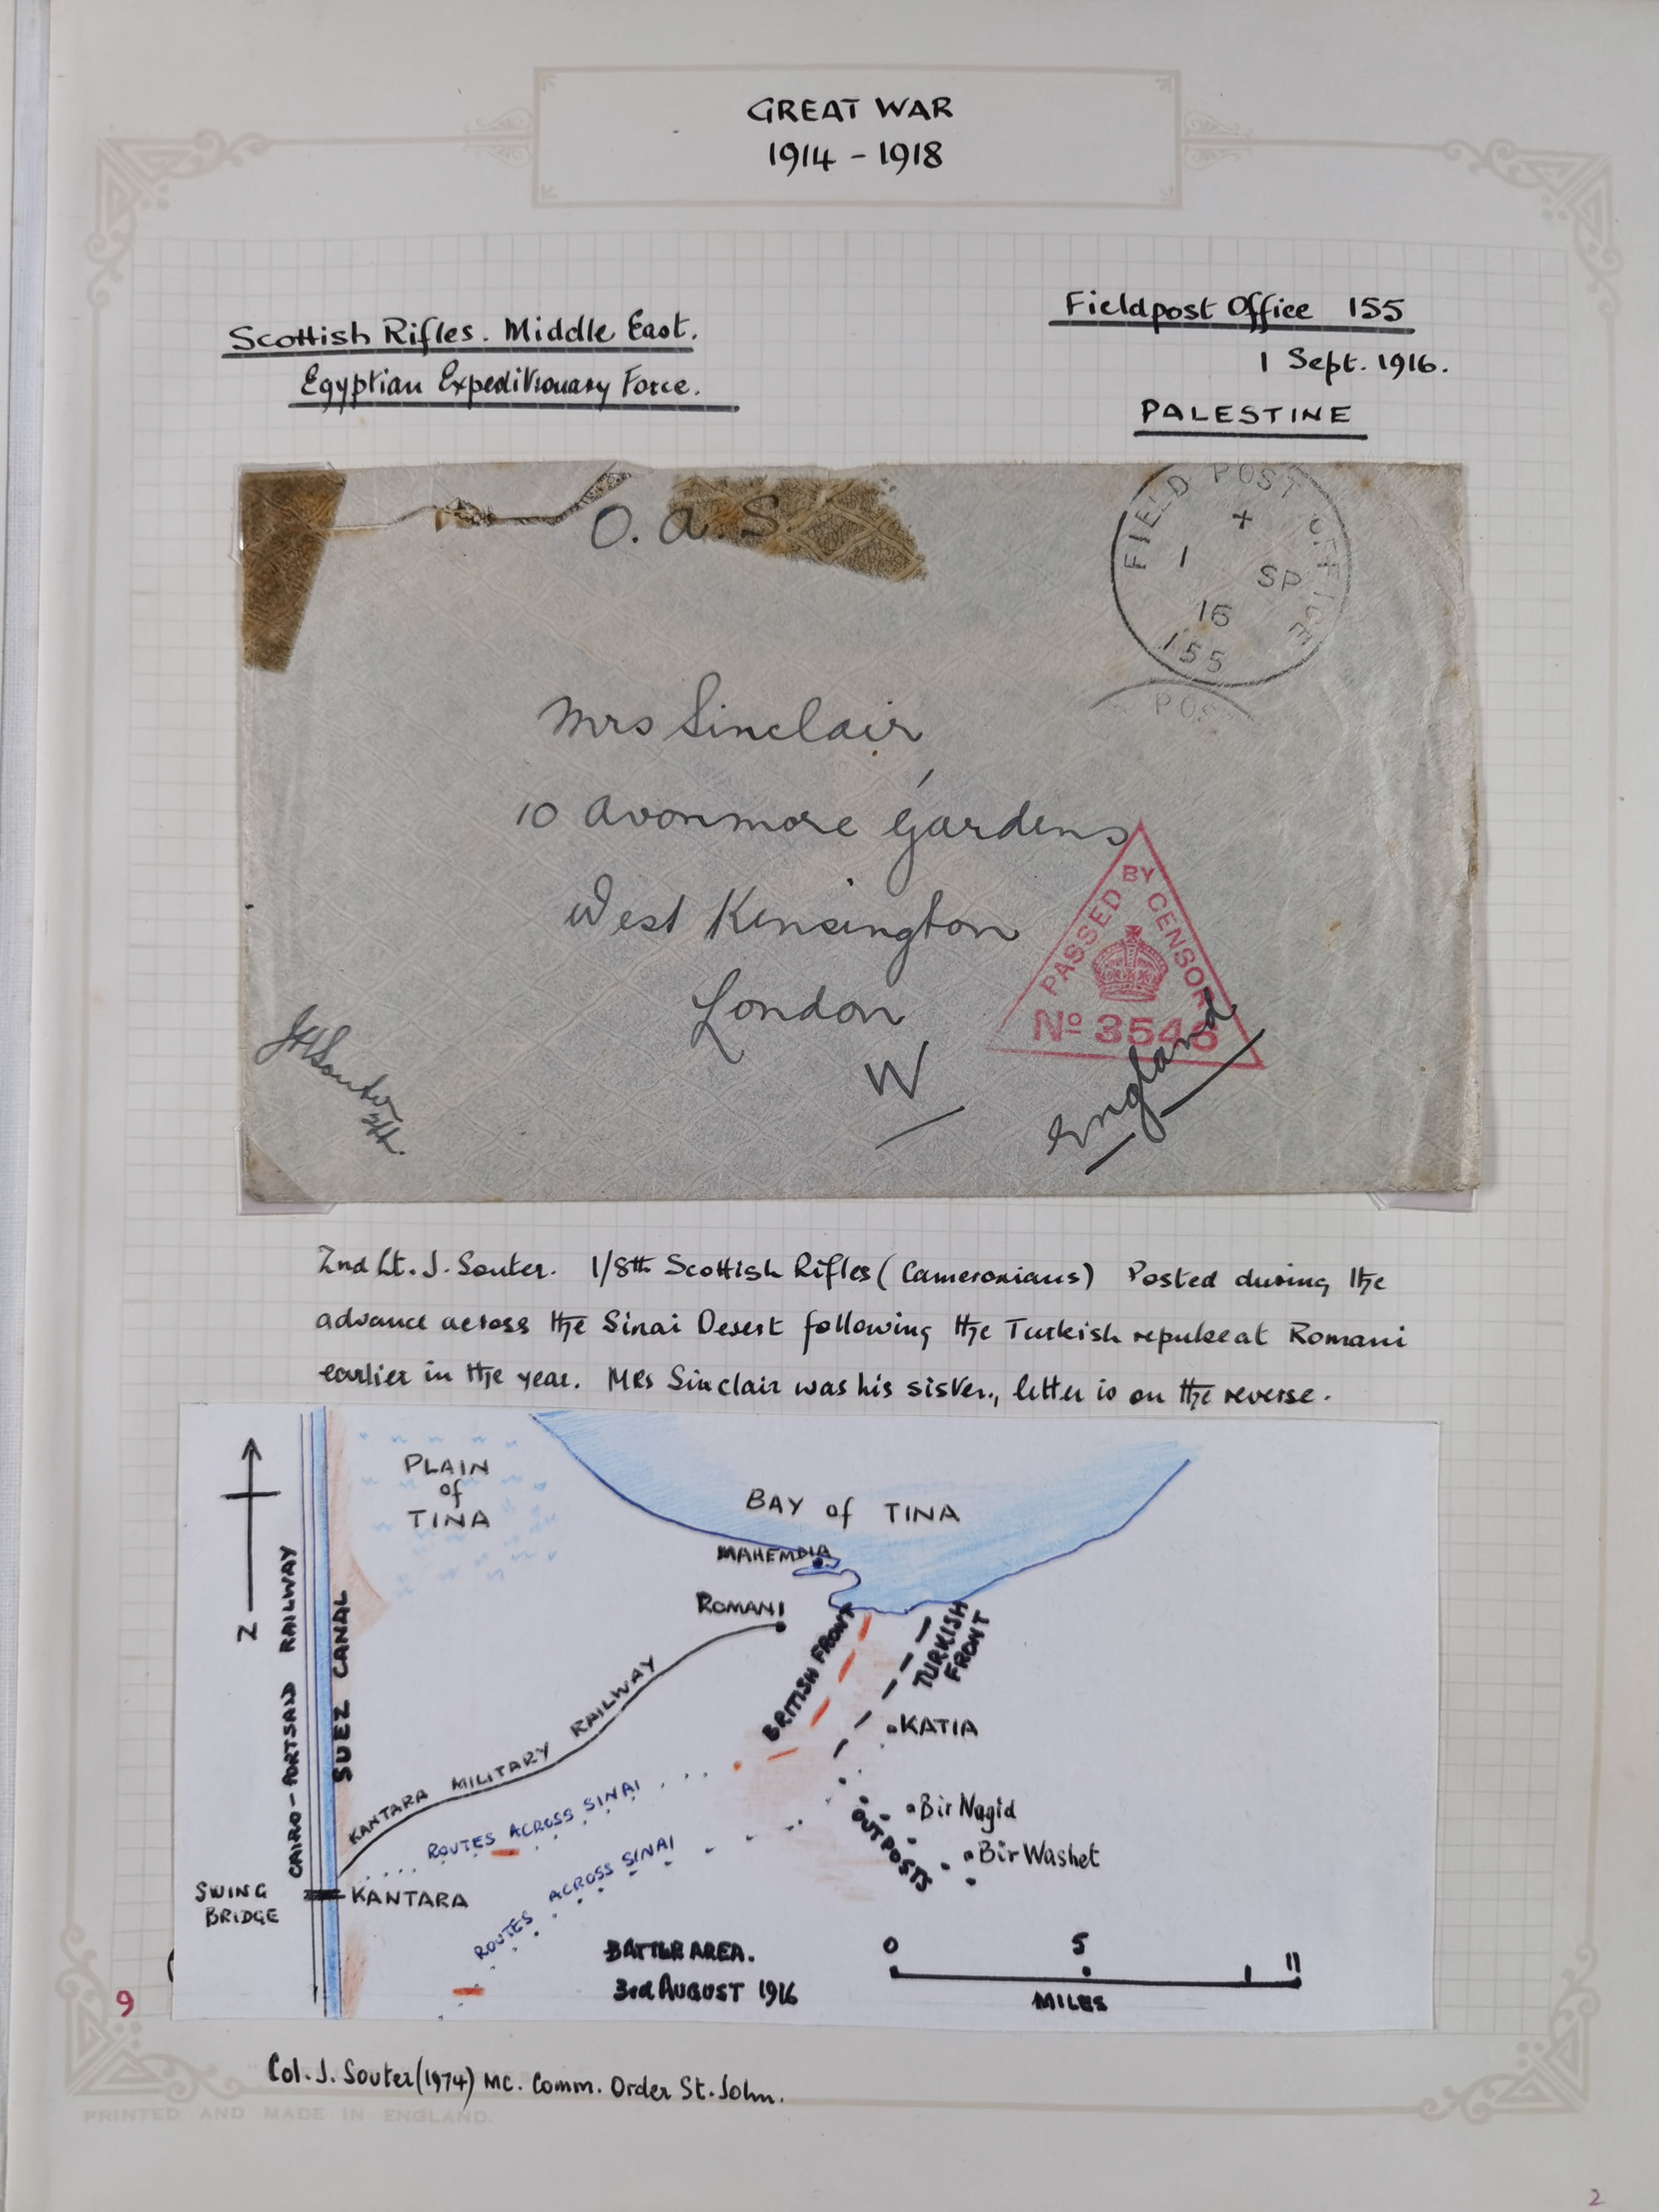 GREAT WAR
1914 - 1918
Scottish Rifles. Middle East.
Egyptian Expeditionary Force.
Fieldpost Office 155
1 Sept. 1916.
PALESTINE
O. a. S.
FIELD POST OFFICE
+
1 SP
16
155
POS
Mrs Sinclair,
10 Avonmore Gardens
West Kensington
London
W
England
PASSED BY CENSOR
No 3546
JHSouter
2nd Lt. J. Souter. 1/8th Scottish Rifles (Cameronians) Posted during the
advance across the Sinai Desert following the Turkish repulse at Romani
earlier in the year. MRs Sinclair was his sister., letter is on the reverse.
N
CAIRO-PORTSAID RAILWAY
SUEZ CANAL
PLAIN
of
TINA
BAY of TINA
MAHEMDIA
ROMANI
BRITISH FRONT
TURKISH
FRONT
KATIA
KANTARA MILITARY RAILWAY
ROUTES ACROSS SINAI
ROUTES ACROSS SINAI
OUTPOSTS
Bir Nagid
Bir Washet
SWING
BRIDGE
KANTARA
BATTLE AREA.
3rd AUGUST 1916
0 5 11
MILES
9
Col. J. Souter (1974) MC. Comm. Order St. John.
PRINTED AND MADE IN ENGLAND.
2